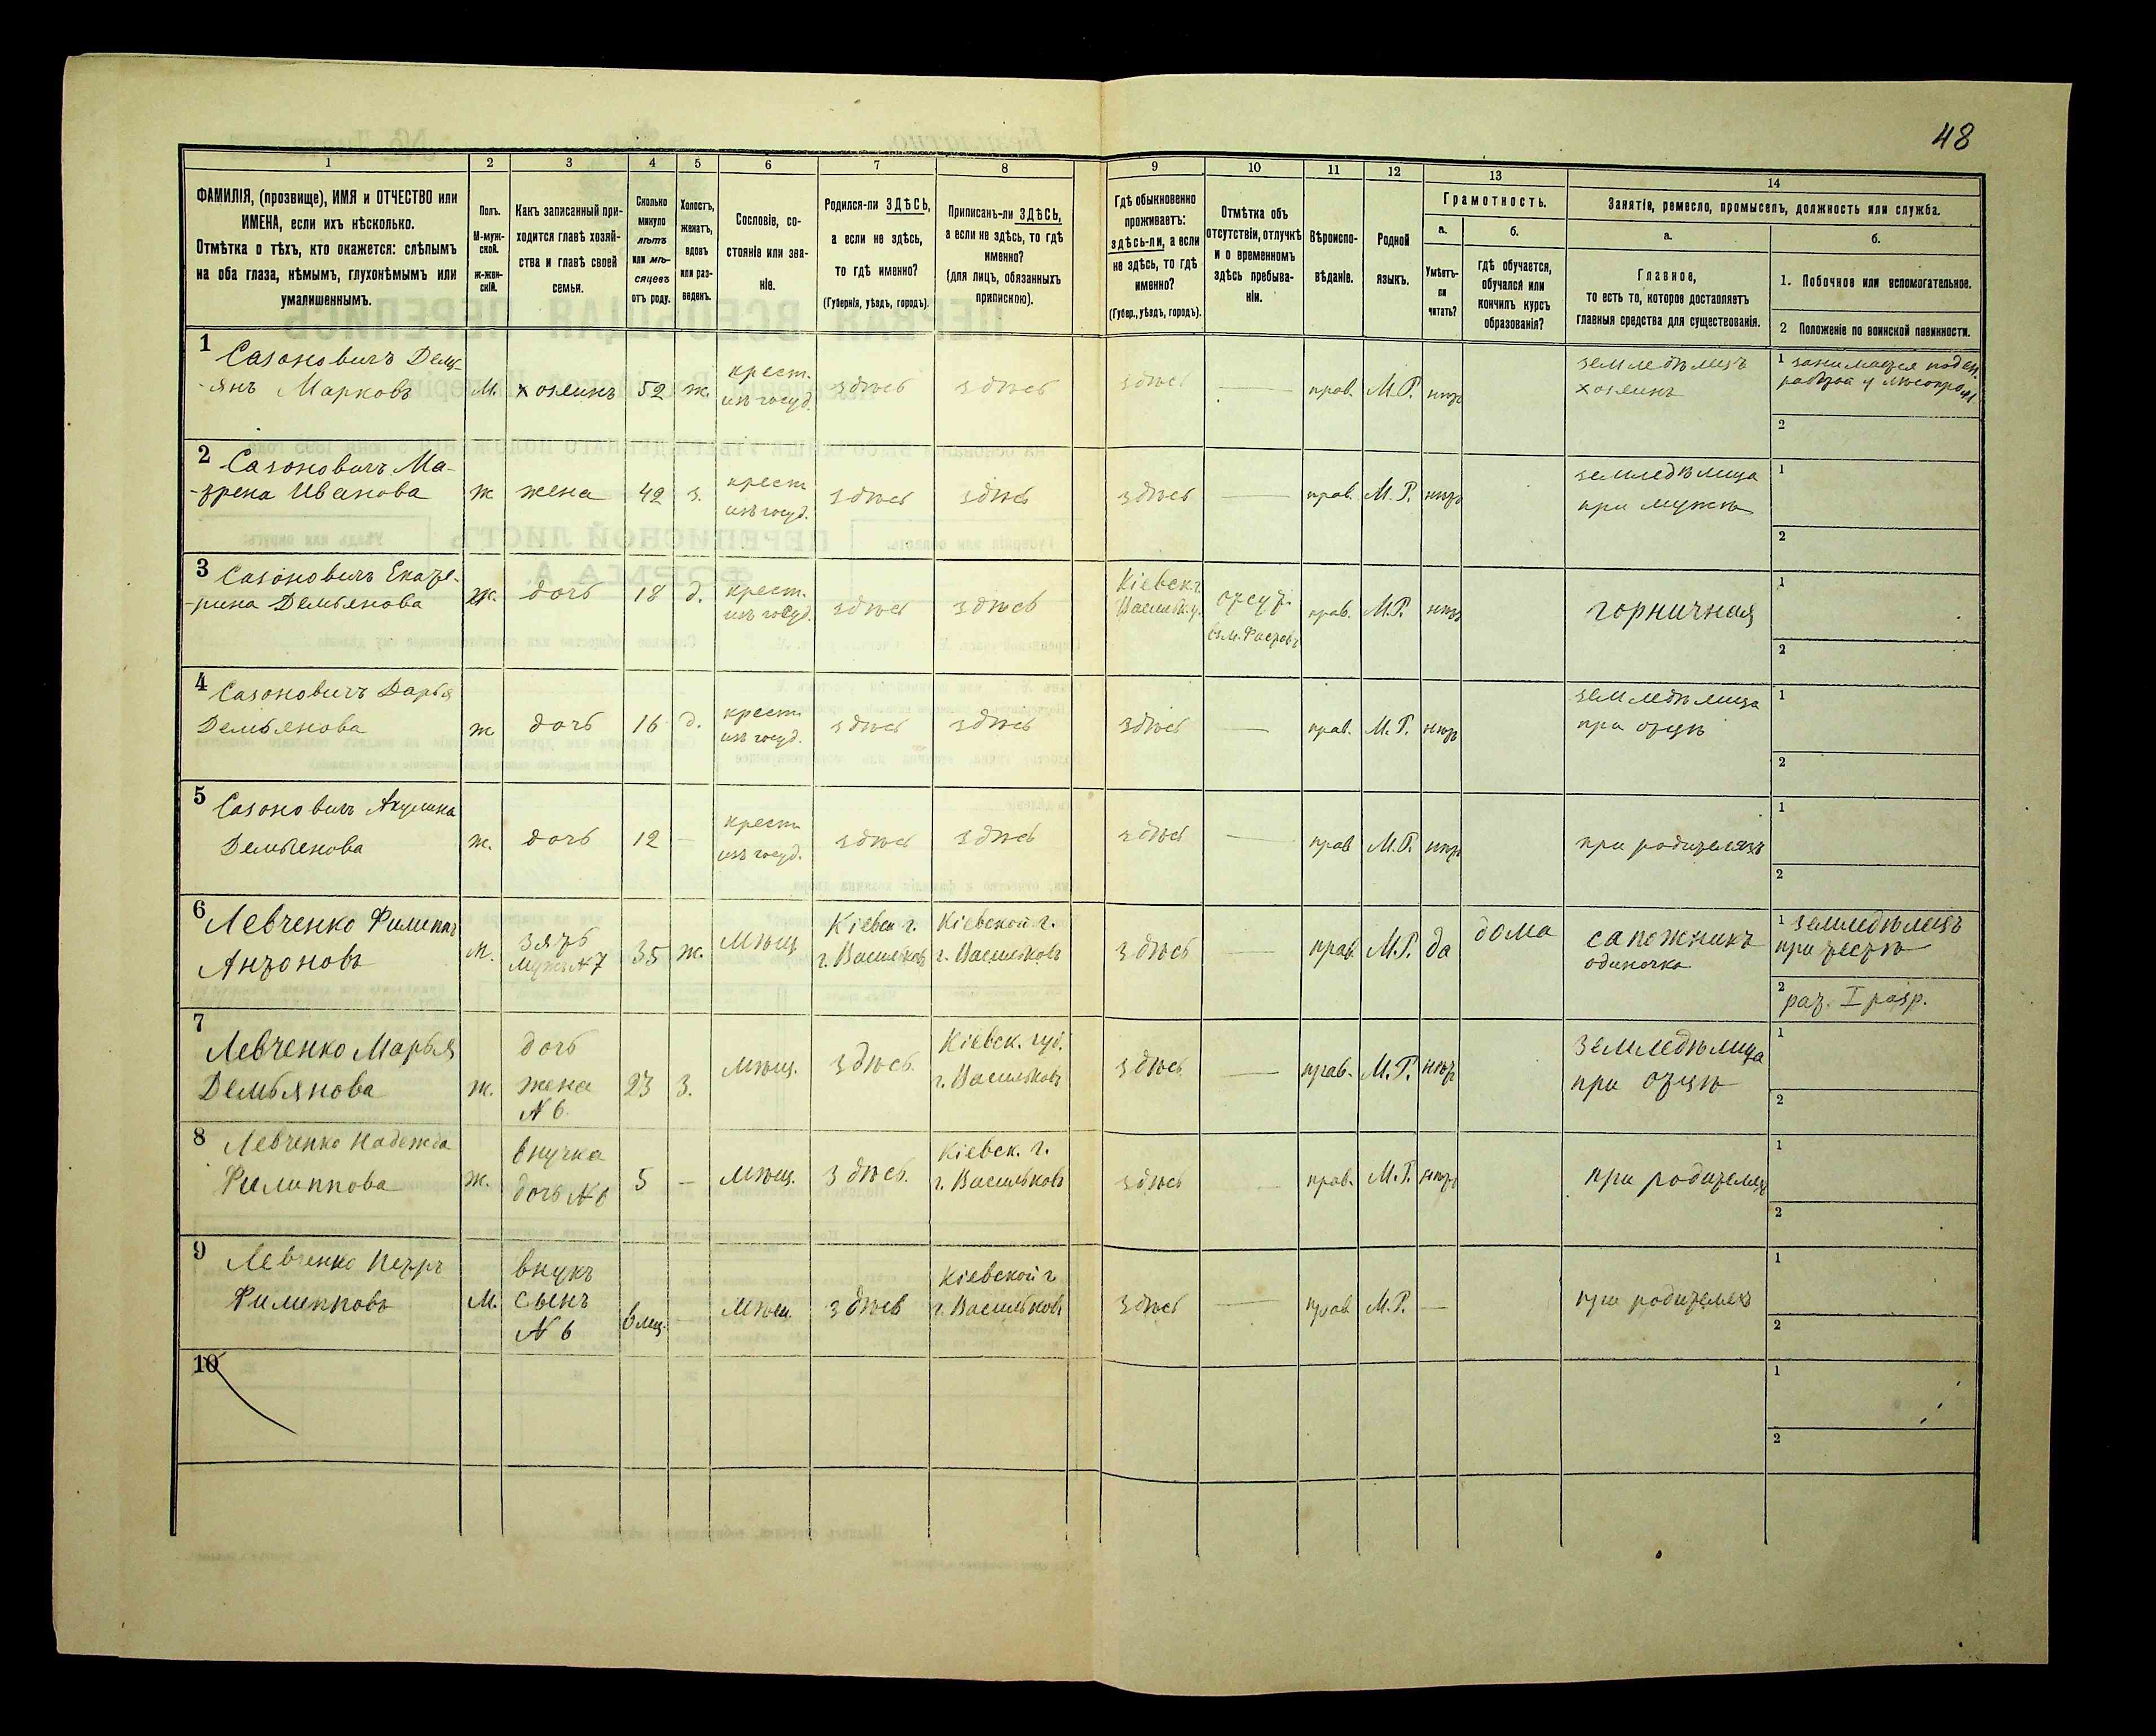 48
1
2
3
4
5
6
7
8
9
10
11
12
13
14
ФАМИЛІЯ, (прозвище), ИМЯ и ОТЧЕСТВО или
ИМЕНА, если ихъ нѣсколько.
Отмѣтка о тѣхъ, кто окажется: слѣпымъ
на оба глаза, нѣмымъ, глухонѣмымъ или
умалишеннымъ.
Полъ.
М-муж-
ской.
Ж-жен-
скій.
Какъ записанный при-
ходится главѣ хозяй-
ства и главѣ своей
семьи.
Сколько
минуло
лѣтъ
или мѣ-
сяцевъ
отъ роду.
Холостъ,
женатъ,
вдовъ
или раз-
веденъ.
Сословіе, со-
стояніе или зва-
ніе.
Родился-ли ЗДѢСЬ,
а если не здѣсь,
то гдѣ именно?
(Губернія, уѣздъ, городъ).
Приписанъ-ли ЗДѢСЬ,
а если не здѣсь, то гдѣ
именно?
(для лицъ, обязанныхъ
припискою).
Гдѣ обыкновенно
проживаетъ:
здѣсь-ли, а если
не здѣсь, то гдѣ
именно?
(Губер., уѣздъ, городъ).
Отмѣтка объ
отсутствіи, отлучкѣ
и о временномъ
здѣсь пребыва-
ніи.
Вѣроиспо-
вѣданіе.
Родной
языкъ.
Грамотность.
а.
Умѣетъ-
ли
читать?
б.
Гдѣ обучается,
обучался или
кончилъ курсъ
образованія?
Занятіе, ремесло, промыселъ, должность или служба.
а.
Главное,
то есть то, которое доставляетъ
главныя средства для существованія.
б.
1. Побочное или вспомогательное.
2 Положеніе по воинской повинности.
1
Сазоновичъ Демь-
-янъ Марковъ
М.
хозяинъ
52
ж.
крест.
изъ госуд.
здѣсь
здѣсь
здѣсь
прав.
М.Р.
нѣтъ
земледѣлецъ
хозяинъ
1 занимается поден.
2
2
Сазоновичъ Ма-
-трена Иванова
ж
жена
42
з.
крест
изъ госуд.
здѣсь
здѣсь
здѣсь
прав.
М.Р.
нѣтъ
земледѣлица
при мужѣ
1
2
3
Сазоновичъ Екате-
-рина Демьянова
ж.
дочь
18
д.
крест.
изъ госуд.
здѣсь
здѣсь
Кіевск г.
Васильк. у.
отсут.
въ м. Фастовъ
прав.
М.Р.
нѣтъ
горничная
1
2
4
Сазоновичъ Дарья
Демьянова
ж
дочь
16
д.
крест.
изъ госуд.
здѣсь
здѣсь
здѣсь
прав.
М.Р.
нѣтъ
земледѣлица
при отцѣ
1
2
5
Сазоновичъ Акулина
Демьянова
ж.
дочь
12
—
крест
изъ госуд.
здѣсь
здѣсь
здѣсь
прав
М.Р.
нѣтъ
при родителяхъ
1
2
6
Левченко Филиппъ
Антоновъ
М.
зять
мужъ N 7
35
ж.
Мѣщ.
Кіевск г.
г. Васильковъ
Кіевской г.
г. Васильковъ
здѣсь
прав.
М.Р.
да
дома
сапожникъ
одиночка
1 земледѣлецъ
при тестѣ
2 рат. I разр.
7
Левченко Марья
Демьянова
ж.
дочь
жена
N 6
23
з.
мѣщ.
здѣсь.
Кіевск. губ.
г. Васильковъ
здѣсь
прав.
М.Р.
нѣтъ
земледѣлица
при отцѣ
1
2
8
Левченко Надежда
Филиппова
ж.
внучка
дочь N 6
5
—
мѣщ.
здѣсь.
Кіевск. г.
г. Васильковъ
здѣсь
прав.
М.Р.
нѣтъ
при родителяхъ
1
2
9
Левченко Петръ
Филипповъ
М.
внукъ
сынъ
N 6
6 мц.
—
Мѣщ.
здѣсь
Кіевской г.
г. Васильковъ
здѣсь
прав.
М.Р.
—
при родителяхъ
1
2
10
1
2